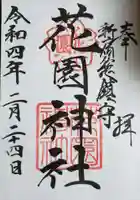 奉拝
新宿総鎮守
花園神社
令和四年二月二十四日